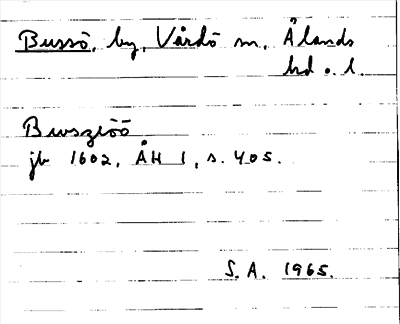 Bussö, by, Vårdö sn, Ålands
hd o. l.
Buszöö
jb 1602, ÅH 1, s. 405.
S. A. 1965.